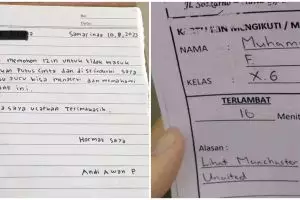 No.
Date
Samarinda, 10, 8, 2023
memohon izin untuk tidak masuk
Putus cinta dan di selingkuhi saya
guru bisa mengerti dan memahami
ini.
saya ucapkan Terimakasih.
Hormat saya
Andi Awan P
MENGIKUTI / M
NAMA : Muham
F.
KELAS : X.6
TERLAMBAT
16 Menit
Alasan :
Lihat Manchester
United